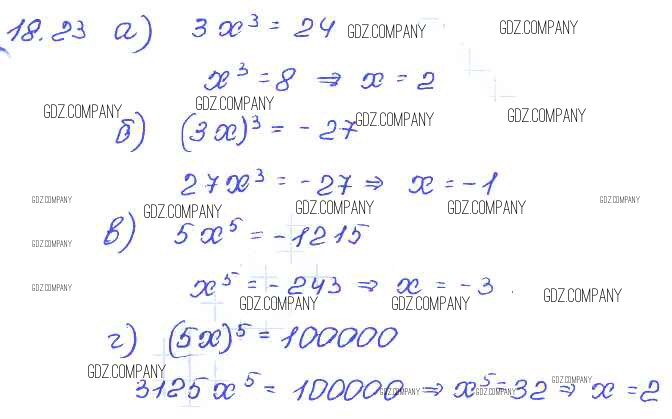 18.23 а) 3x³ = 24 GDZ.COMPANY GDZ.COMPANY
x³ = 8 ⇒ x = 2
GDZ.COMPANY GDZ.COMPANY
б) (3x)³ = -27 GDZ.COMPANY GDZ.COMPANY
27x³ = -27 ⇒ x = -1
GDZ.COMPANY GDZ.COMPANY GDZ.COMPANY GDZ.COMPANY GDZ.COMPANY
в) 5x⁵ = -1215
GDZ.COMPANY
x⁵ = -243 ⇒ x = -3
GDZ.COMPANY GDZ.COMPANY GDZ.COMPANY GDZ.COMPANY
г) (5x)⁵ = 100000
GDZ.COMPANY
3125x⁵ = 100000 ⇒ x⁵ = 32 ⇒ x = 2
GDZ.COMPANY GDZ.COMPANY GDZ.COMPANY